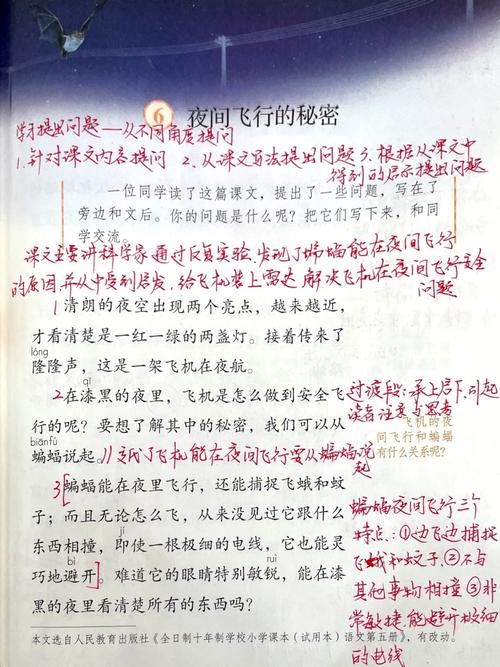 6 夜间飞行的秘密
学习提出问题——从不同角度提问
1.针对课文内容提问 2.从课文写法提出问题 3.根据从课文中
得到的启示提出问题
一位同学读了这篇课文，提出了一些问题，写在了
旁边和文后。你的问题是什么呢？把它们写下来，和同
学交流。
课文主要讲科学家通过反复实验，发现了蝙蝠能在夜间飞行
的原因并从中受到启发，给飞机装上雷达，解决飞机在夜间飞行安全
问题
1清朗的夜空出现两个亮点，越来越近，
才看清楚是一红一绿的两盏灯。接着传来了
lóng
隆隆声，这是一架飞机在夜航。
qī
2在漆黑的夜里，飞机是怎么做到安全飞
行的呢？要想了解其中的秘密，我们可以从
biānfú
蝙蝠说起。//交代了飞机能在夜间飞行要从蝙蝠说
起
过渡段：承上启下，引起
读者注意与思考
飞机的夜
间飞行和蝙蝠
有什么关系呢？
3[蝙蝠能在夜里飞行，还能捕捉飞蛾和蚊
子；而且无论怎么飞，从来没见过它跟什么
东西相撞，即使一根极细的电线，它也能灵
bì
ruì
巧地避开]。难道它的眼睛特别敏锐，能在漆
黑的夜里看清楚所有的东西吗？
蝙蝠夜间飞行三个
特点：①边飞边捕捉
飞蛾和蚊子②不与
其他事物相撞③非
常敏捷，能避开极细
的电线
本文选自人民教育出版社《全日制十年制学校小学课本（试用本）语文第五册》，有改动。